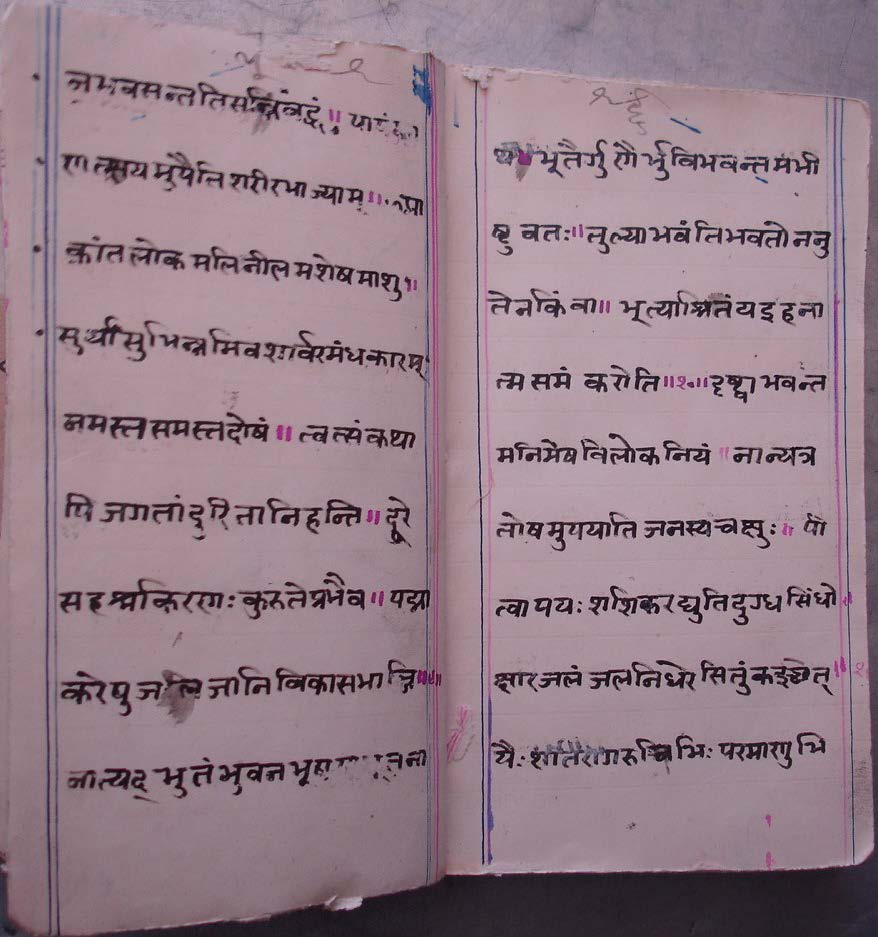 नभवसन्ततिसन्निबद्धं॥ पापं
णात्क्षयमुपैति शरीरभाज्याम॥
क्रांतलोकमलिनीलमशेषमाशु॥
सुर्यांसुभिन्नमिवशार्वरमंधकारम्
नमस्तसमस्तदोषं॥ त्वत्संकथा
पि जगतां दुरितानिहन्ति॥ दूरे
सहश्रकिरणः कुरुतेप्रभैव॥ पद्मा
करेषु जलजानि विकासभाञ्जि॥९॥
नात्यद् भुतं भुवनभूष
भूतैर्गुणैर्भुविभवन्तमभी
ष्टुवतः॥ तुल्याभवंतिभवतोननु
तेनकिंवा॥ भूत्याश्रितंयइहना
त्मसमं करोति॥१०॥ दृष्ट्वाभवन्त
मनिमेषविलोकनियं॥ नान्यत्र
तोषमुपयाति जनस्यचक्षुः॥ पी
त्वापयः शशिकरद्युतिदुग्धसिंधो॥
क्षारंजलं जलनिधेरसितुंकइछेत्॥
यैः शांतरागरुचिभिः परमाणुभि